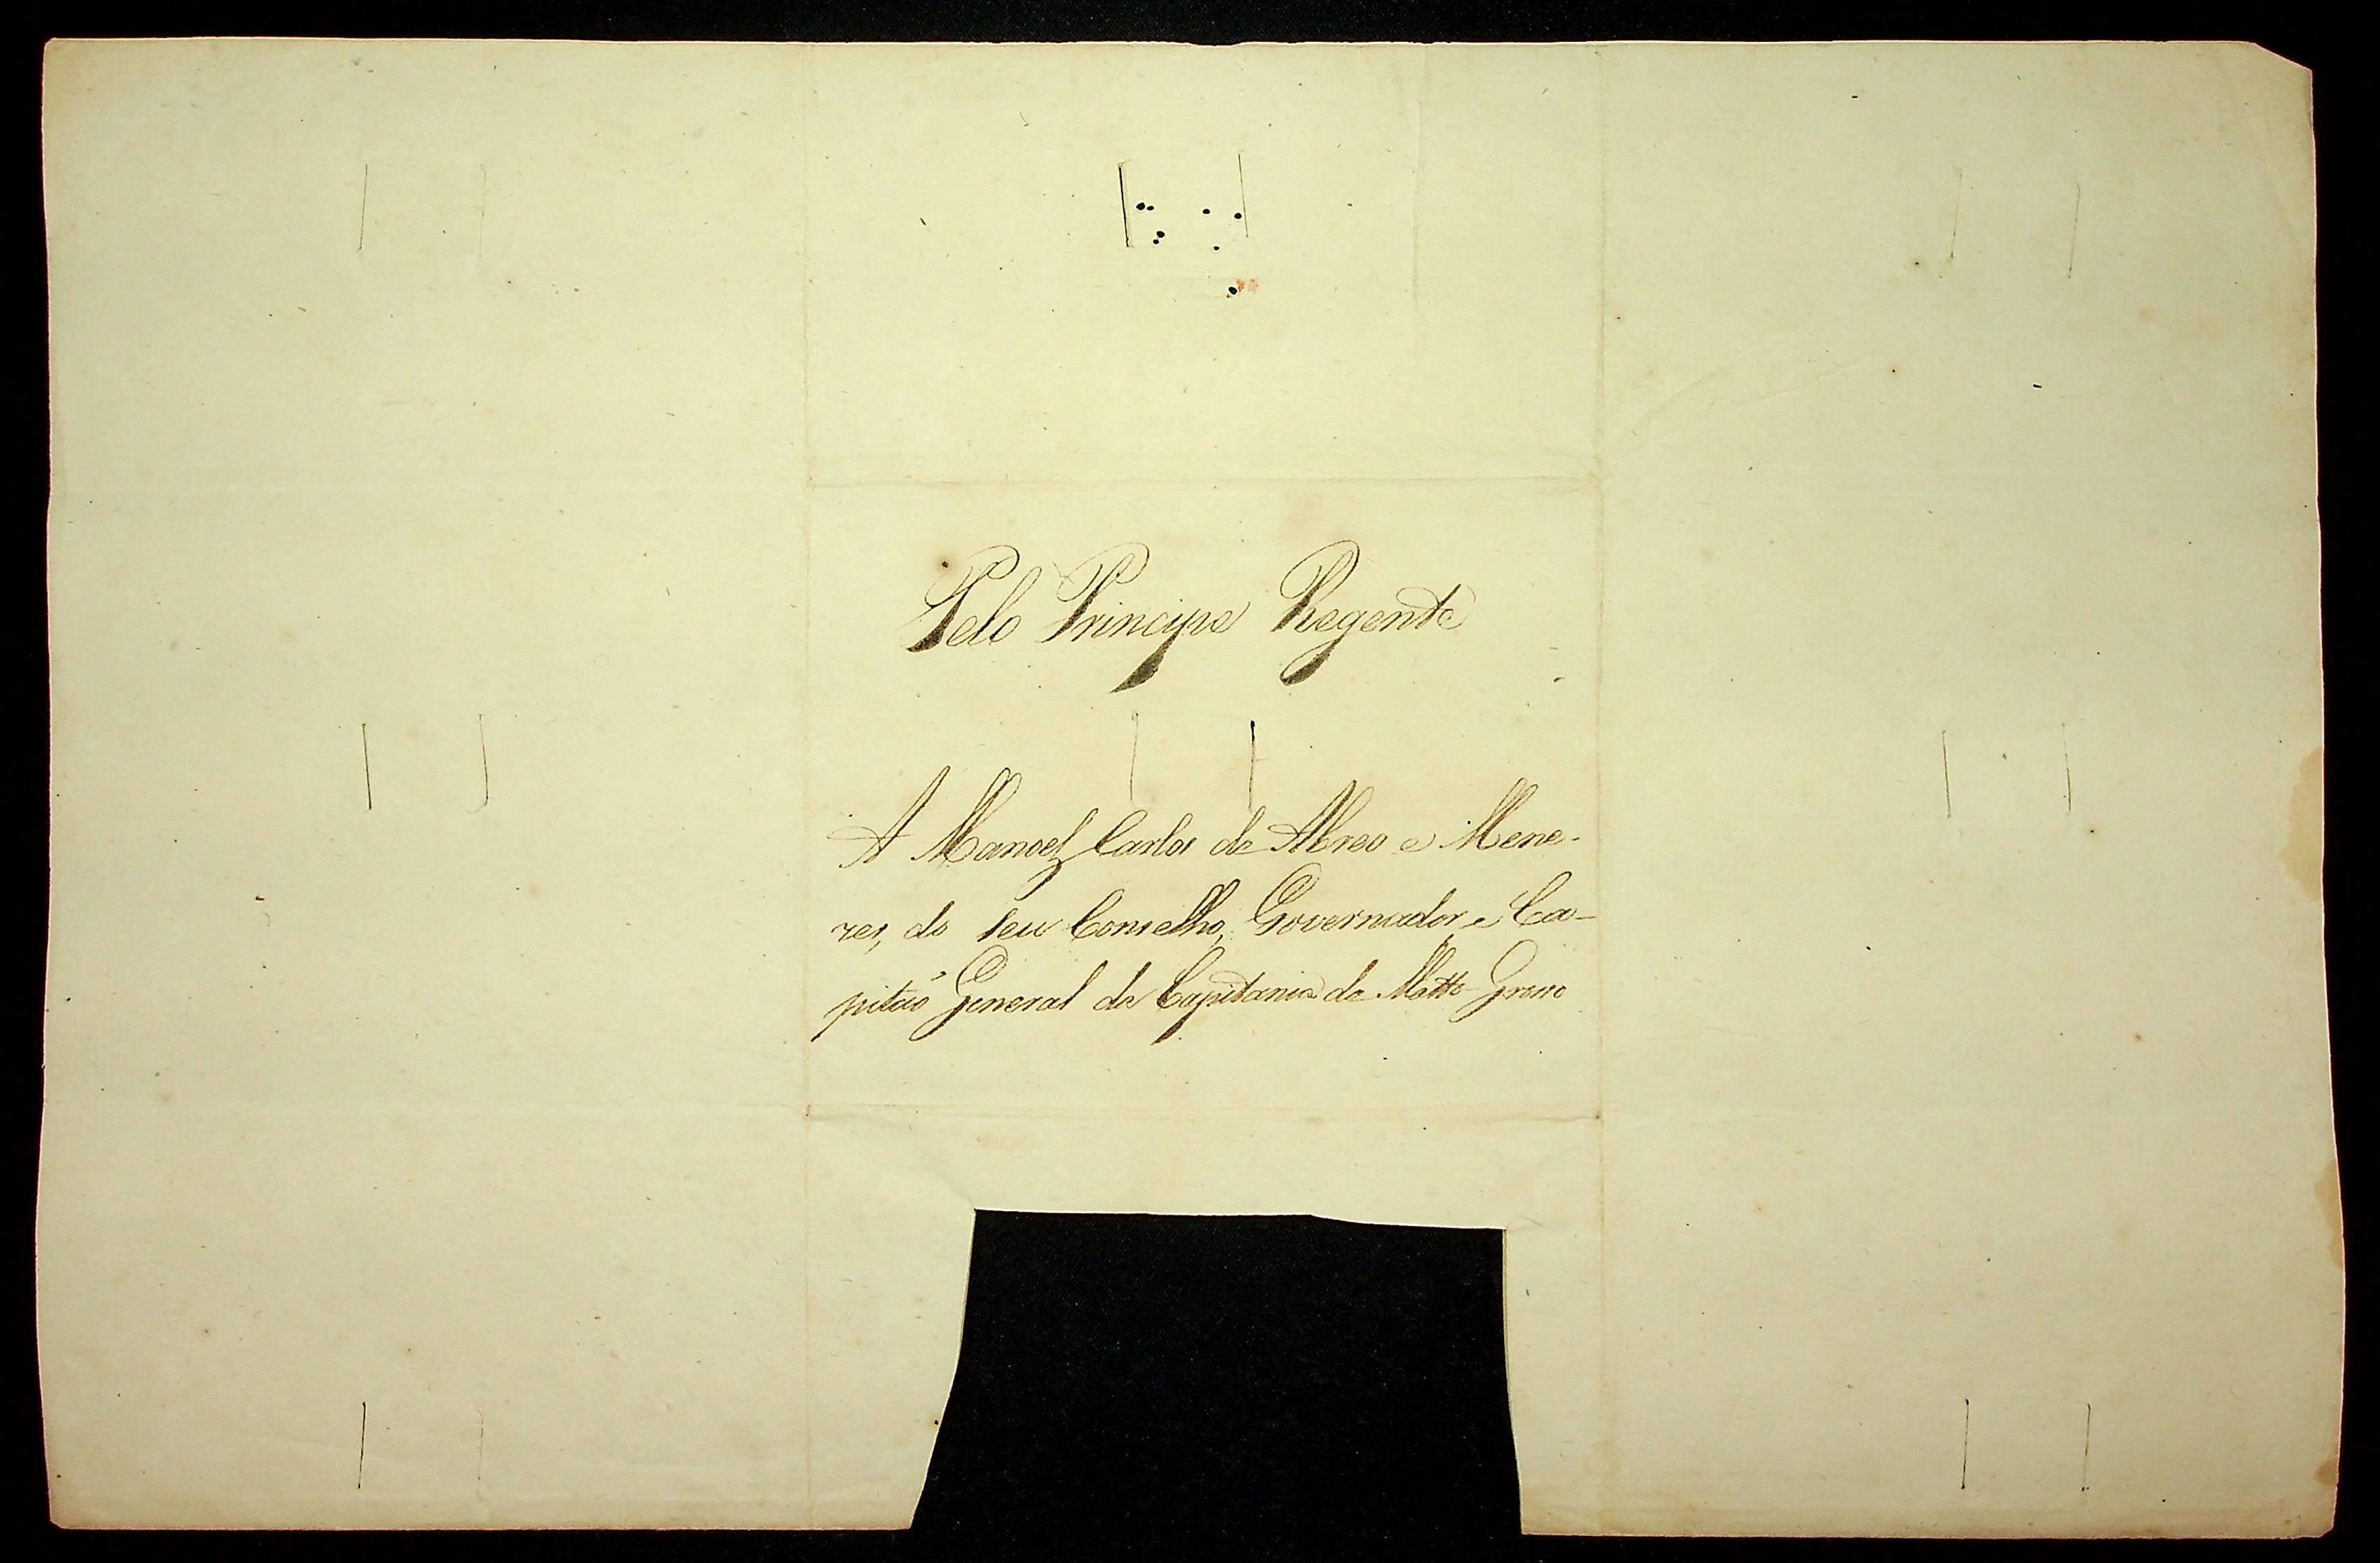 Pelo Principe Regente
A Manoel Carlos de Abreo e Mene-
zes, do seu Conselho, Governador, e Ca-
pitaõ General da Capitania de Matto Grosso